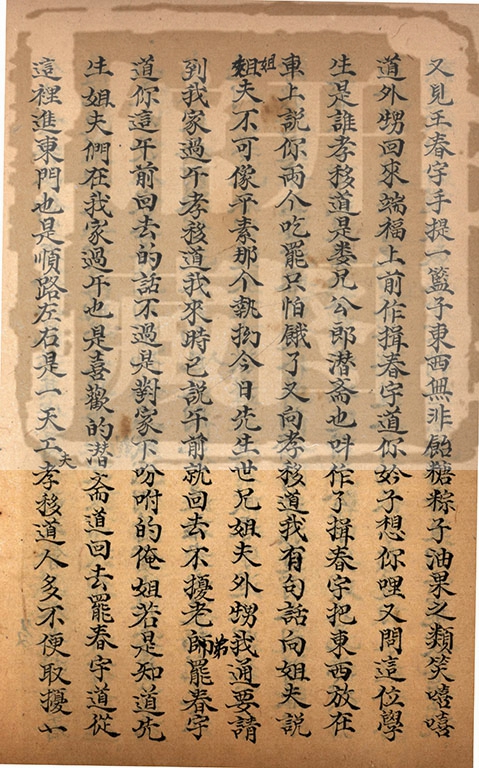 又見王春宇手提一籃子東西無非飴糖粽子油果之類笑嘻嘻
道外甥回來端福上前作揖春宇道你妗子想你哩又問這位學
生是誰孝移道是娄兄公郎潜斋也叫作了揖春宇把東西放在
車上説你两个吃罷只怕餓了又向孝移道我有句話向姐夫説
姐夫不可像平素那个執抝今日先生世兄姐夫外甥我通要請
到我家過午孝移道我來時已説午前就回去不擾老弟罷春宇
道你這午前回去的話不過是對家下吩咐的俺姐若是知道先
生姐夫們在我家過午也是喜歡的潜斋道回去罷春宇道從
這裡進東門也是順路左右是一天工夫孝移道人多不便取擾